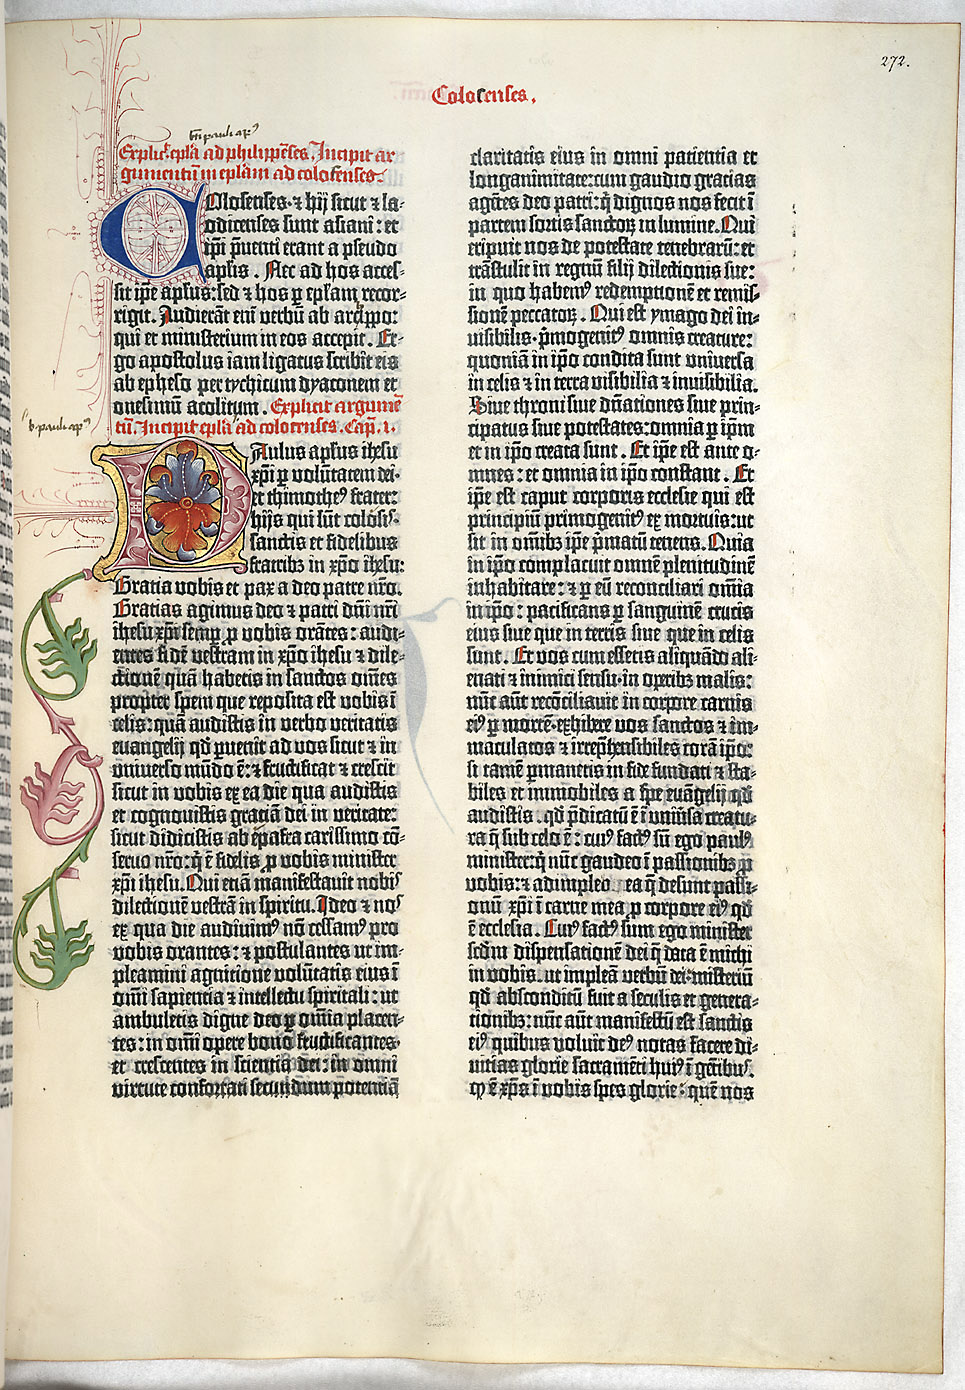 272.
Colocenses.
bti pauli apᵒ
Explic̄ ep̄la ad philippēses. Incipit ar
gumentū in ep̄lam ad colosenses.
COlosenses ⁊ hij sicut ⁊ la⸗
odicenses sunt asiani: et
ip̄i p̄uenti erant a pseudo
aposl̄is. Nec ad hos acces⸗
sit ip̄e apl̄us: sed ⁊ hos ꝑ ep̄lam recor⸗
rigit. Audierāt eni verbū ab archippo:
qui et ministerium in eos accepit. Er⸗
go apostolus iam ligatus scribit eis
ab epheso per tychicum dyaconem et
onesimū acolitum. Explicit argumē
tū. Incipit ep̄la ad colocenses. Cap̄. i.
b. pauli apᵒ
PAulus apl̄us ihesu
xp̄i ꝑ volūtatem dei·
et thimotheꝰ frater:
hijs qui sūt colosis·
sanctis et fidelibus
fratribꝫ in xp̄o ih̄esu:
Gratia vobis et pax a deo patre nr̄o.
Gratias agimus deo ⁊ patri dn̄i nr̄i
ih̄esu xp̄i semꝑ ꝓ vobis orātes: audi⸗
entes fidē vestram in xp̄o ihesu ⁊ dile⸗
ctionē quā habetis in sanctos om̄es
propter spem que reposita est vobis ī
celis: quā audistis in verbo veritatis
euangelij qd̄ ꝑuenit ad vos sicut ⁊ in
vniuerso mūdo ē: ⁊ fructificat ⁊ crescit
sicut in vobis ex ea die qua audistis
et cognouistis gratiā dei in veritate:
sicut didicistis ab epafra carissimo cō⸗
seruo nr̄o: q̇ ē fidelis ꝓ vobis minister
xp̄i ihesu. Qui etiā manifestauit nobis
dilectionē vestrā in spiritu. Ideo ⁊ nos
ex qua die audiuimꝰ nō cessamꝰ pro
vobis orantes: ⁊ postulantes ut im⸗
pleamini agnitione volūtatis eius ī
om̄i sapientia ⁊ intellectu spiritali: ut
ambuletis digne deo ꝑ om̄ia placen⸗
tes: in om̄i opere bono fructificantes·
et crescentes in scientia dei: in omni
virtute confortati secundum potentiā
claritatis eius in omni patientia et
longanimitate: cum gaudio gracias
agētes deo patri: q̇ dignos nos fecit ī
partem sortis sanctoꝝ in lumine. Qui
eripuit nos de potestate tenebrarū: et
trāstulit in regnū filij dilectionis sue:
in quo habemꝰ redemptionē et remis⸗
sionē peccatoꝝ. Qui est ymago dei in⸗
uisibilis· p̄mogenitꝰ omnis creature:
quoniā in ip̄o condita sunt vniuersa
in celis ⁊ in terra visibilia ⁊ inuisibilia.
Siue throni siue dn̄ationes siue prin⸗
cipatus siue potestates: omnia ꝑ ip̄m
et in ip̄o creata sunt. Et ip̄e est ante o⸗
mnes: et omnia in ip̄o constant. Et
ip̄e est caput corporis ecclesie qui est
principiū primogenitꝰ ex mortuis: ut
sit in om̄ibꝫ ip̄e p̄matū tenens. Quia
in ip̄o complacuit omnē plenitudinē
inhabitare: ⁊ ꝑ eū reconciliari om̄ia
in ip̄o: pacificans ꝑ sanguinē crucis
eius siue que in terris siue que in celis
sunt. Et vos cum essetis aliquādo ali⸗
enati ⁊ inimici sensu· in oꝑibꝫ malis:
nūc aūt recōciliauit in corpore carnis
eiꝰ ꝑ mortē· exhibere vos sanctos ⁊ im⸗
maculatos ⁊ irrep̄hensibiles corā ip̄o:
si tamē ꝑmanetis in fide fundati ⁊ sta⸗
biles et immobiles a spe euāgelij qd̄
audistis· qd̄ p̄dicatū ē ī vniūsa creatu⸗
ra q̄ sub celo ē: cuiꝰ factꝰ sū ego paulꝰ
minister: q̇ nūc gaudeo ī passionibꝫ ꝓ
vobis: ⁊ adimpleo ea q̄ desunt passi⸗
onū xp̄i ī carne mea ꝓ corpore eiꝰ qd̄
ē ecclesia. Cuiꝰ factꝰ sum ego minister
scd̄m dispensationē dei q̄ data ē michi
in vobis· ut impleā verbū dei: misteriū
qd̄ absconditū fuit a seculis et genera⸗
tionibꝫ: nūc aūt manifestū est sanctis
eiꝰ quibus voluit deꝰ notas facere di⸗
uitias glorie sacramēti huiꝰ ī gētibus.
Qd̄ ē xp̄s ī vobis spes glorie· quē nos